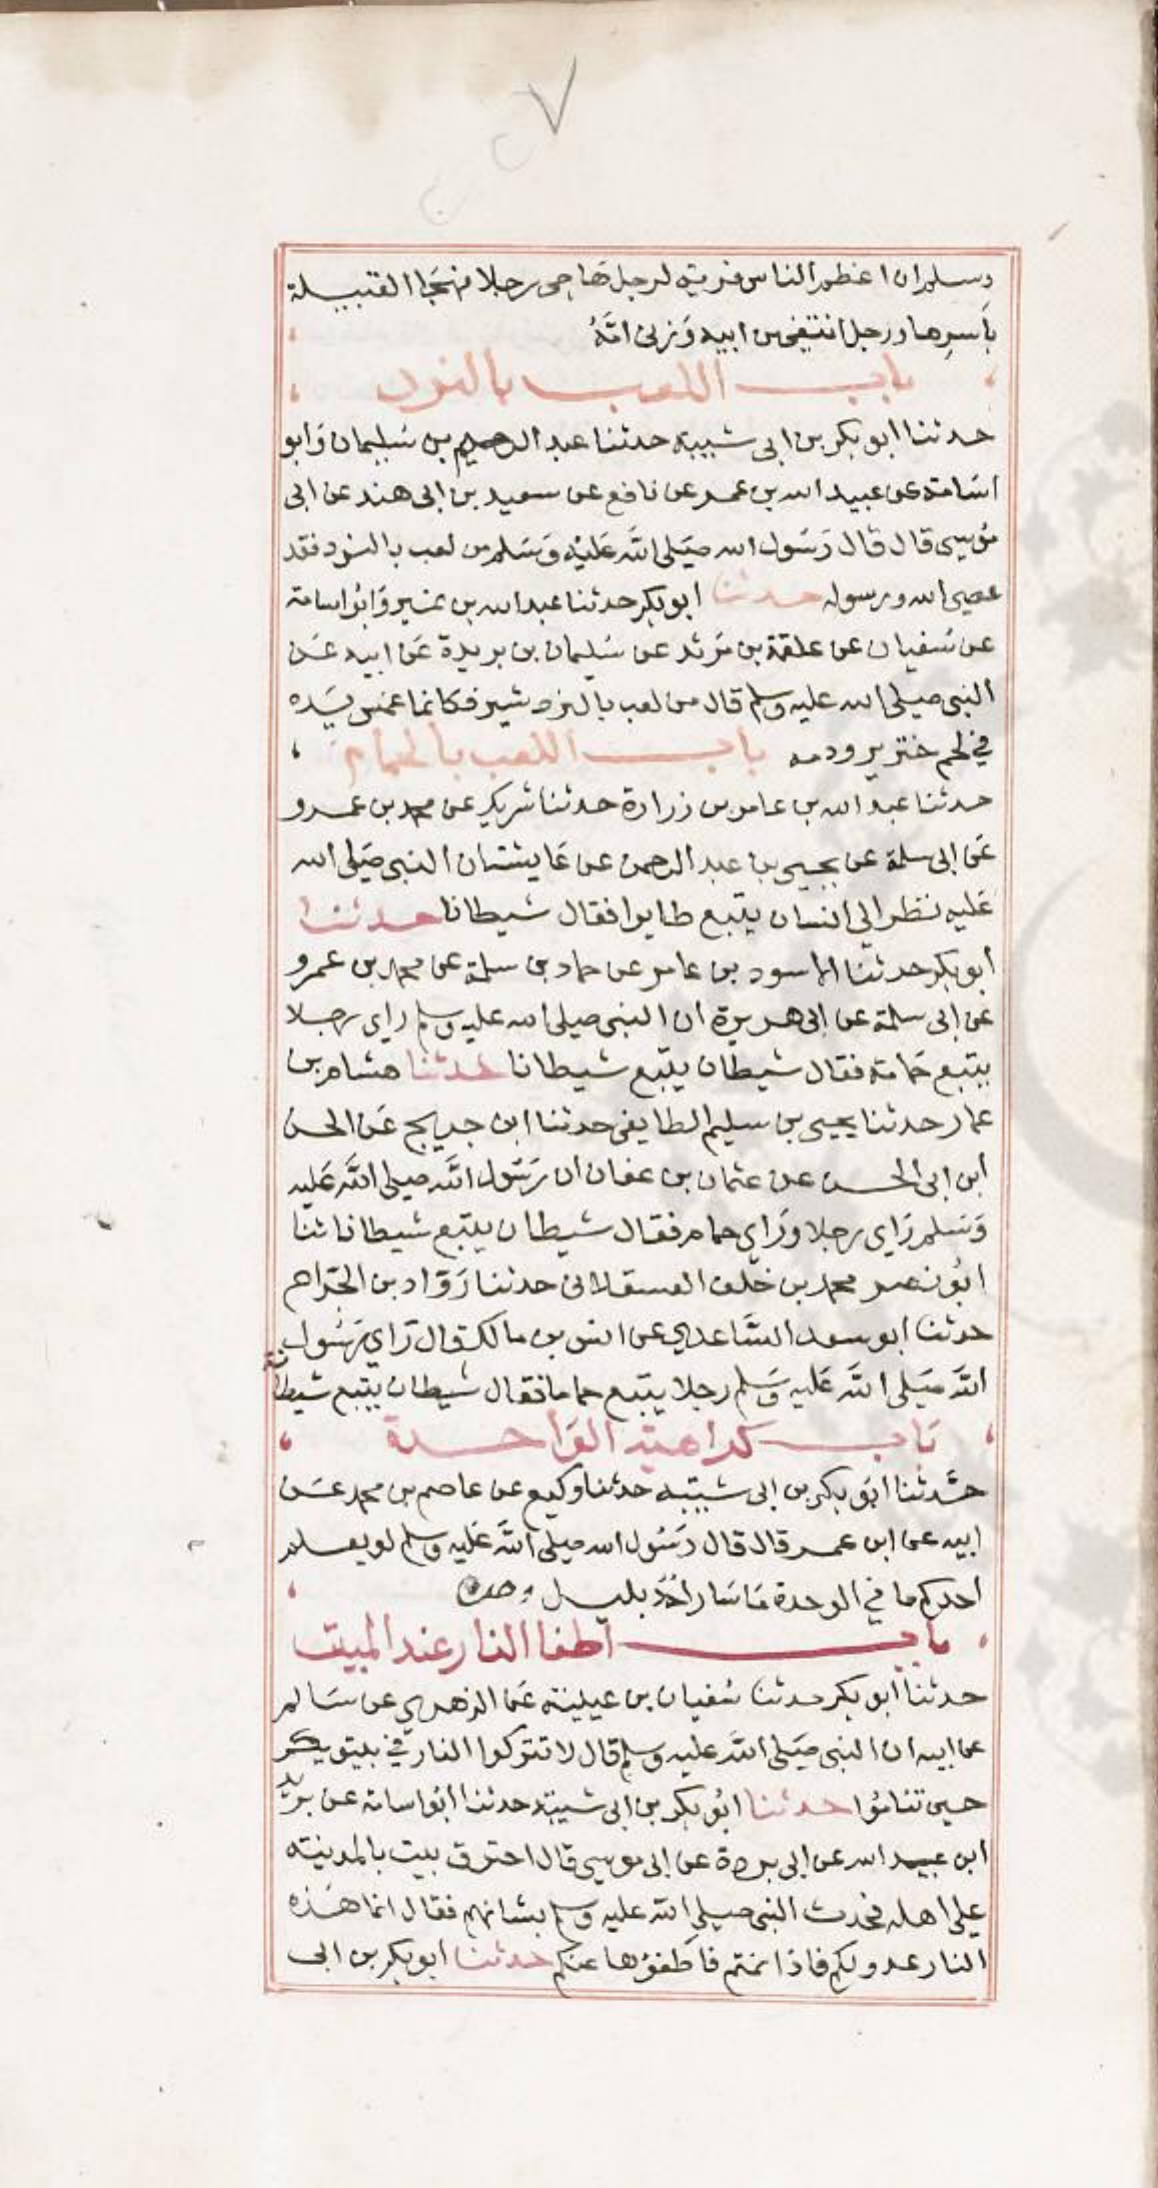 وسلم ان اعظم الناس فرية لرجل هاجى رجلا فهجا القبيلة
باسرها ورجل انتفى من ابيه وزنى امه
باب اللعب بالنرد
حدثنا ابو بكر بن ابى شيبة حدثنا عبد الرحيم بن سليمان وابو
اسامة عن عبيد الله بن عمر عن نافع عن سعيد بن ابى هند عن ابى
موسى قال قال رسول الله صلى الله عليه وسلم من لعب بالنرد فقد
عصى الله ورسوله حدثنا ابو بكر حدثنا عبد الله بن نمير وابو اسامة
عن سفيان عن علقمة بن مرثد عن سليمان بن بريدة عن ابيه عن
النبى صلى الله عليه وسلم قال من لعب بالنرد شير فكانما غمس يده
في لحم خنزير ودمه باب اللعب بالحمام
حدثنا عبد الله بن عامر بن زرارة حدثنا شريك عن محمد بن عمرو
عن ابى سلمة عن يحيى بن عبد الرحمن عن عايشة ان النبى صلى الله
عليه نظر الى انسان يتبع طايرا فقال شيطانا حدثنا
ابو بكر حدثنا الاسود بن عامر عن حماد بن سلمة عن محمد بن عمرو
عن ابى سلمة عن ابى هريرة ان النبى صلى الله عليه وسلم راى رجلا
يتبع حمامة فقال شيطان يتبع شيطانا حدثنا هشام بن
عمار حدثنا يحيى بن سليم الطايفى حدثنا ابن جريج عن الحسن
ابن ابى الحسن عن عثمان بن عفان ان رسول الله صلى الله عليه
وسلم راى رجلا وراى حمام فقال شيطان يتبع شيطانا ثنا
ابو نصر محمد بن خلف العسقلانى حدثنا رواد بن الجراح
حدثنا ابو سعد الساعدي عن انس بن مالك قال راى رسول
الله صلى الله عليه وسلم رجلا يتبع حماما فقال شيطان يتبع شيطانة
باب كراهية الواحدة
حدثنا ابو بكر بن ابى شيبة حدثنا وكيع عن عاصم بن محمد عن
ابيه عن ابن عمر قال قال رسول الله صلى الله عليه وسلم لو يعلم
احدكم ما في الوحدة ما سار احد بليل وحده
باب اطفا النار عند المبيت
حدثنا ابو بكر حدثنا سفيان بن عيينة عن الزهري عن سالم
عن ابيه ان النبى صلى الله عليه وسلم قال لا تتركوا النار في بيوتكم
حين تناموا حدثنا ابو بكر بن ابى شيبة حدثنا ابو اسامة عن بريد
ابن عبيد الله عن ابى بردة عن ابى موسى قال احترق بيت بالمدينة
على اهله فحدث النبى صلى الله عليه وسلم بشانهم فقال انما هذه
النار عدو لكم فاذا نمتم فاطفؤها عنكم حدثنا ابو بكر بن ابى